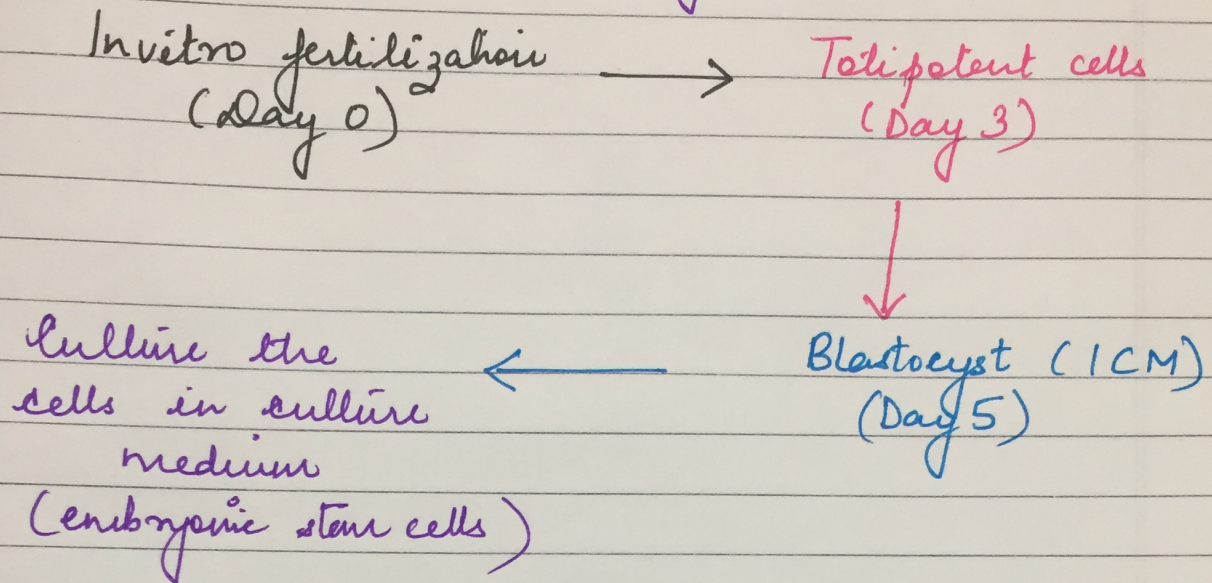 Invitro fertilization
(Day 0)
Totipotent cells
(Day 3)
Blastocyst (ICM)
(Day 5)
Culture the
cells in culture
medium
(embryonic stem cells)